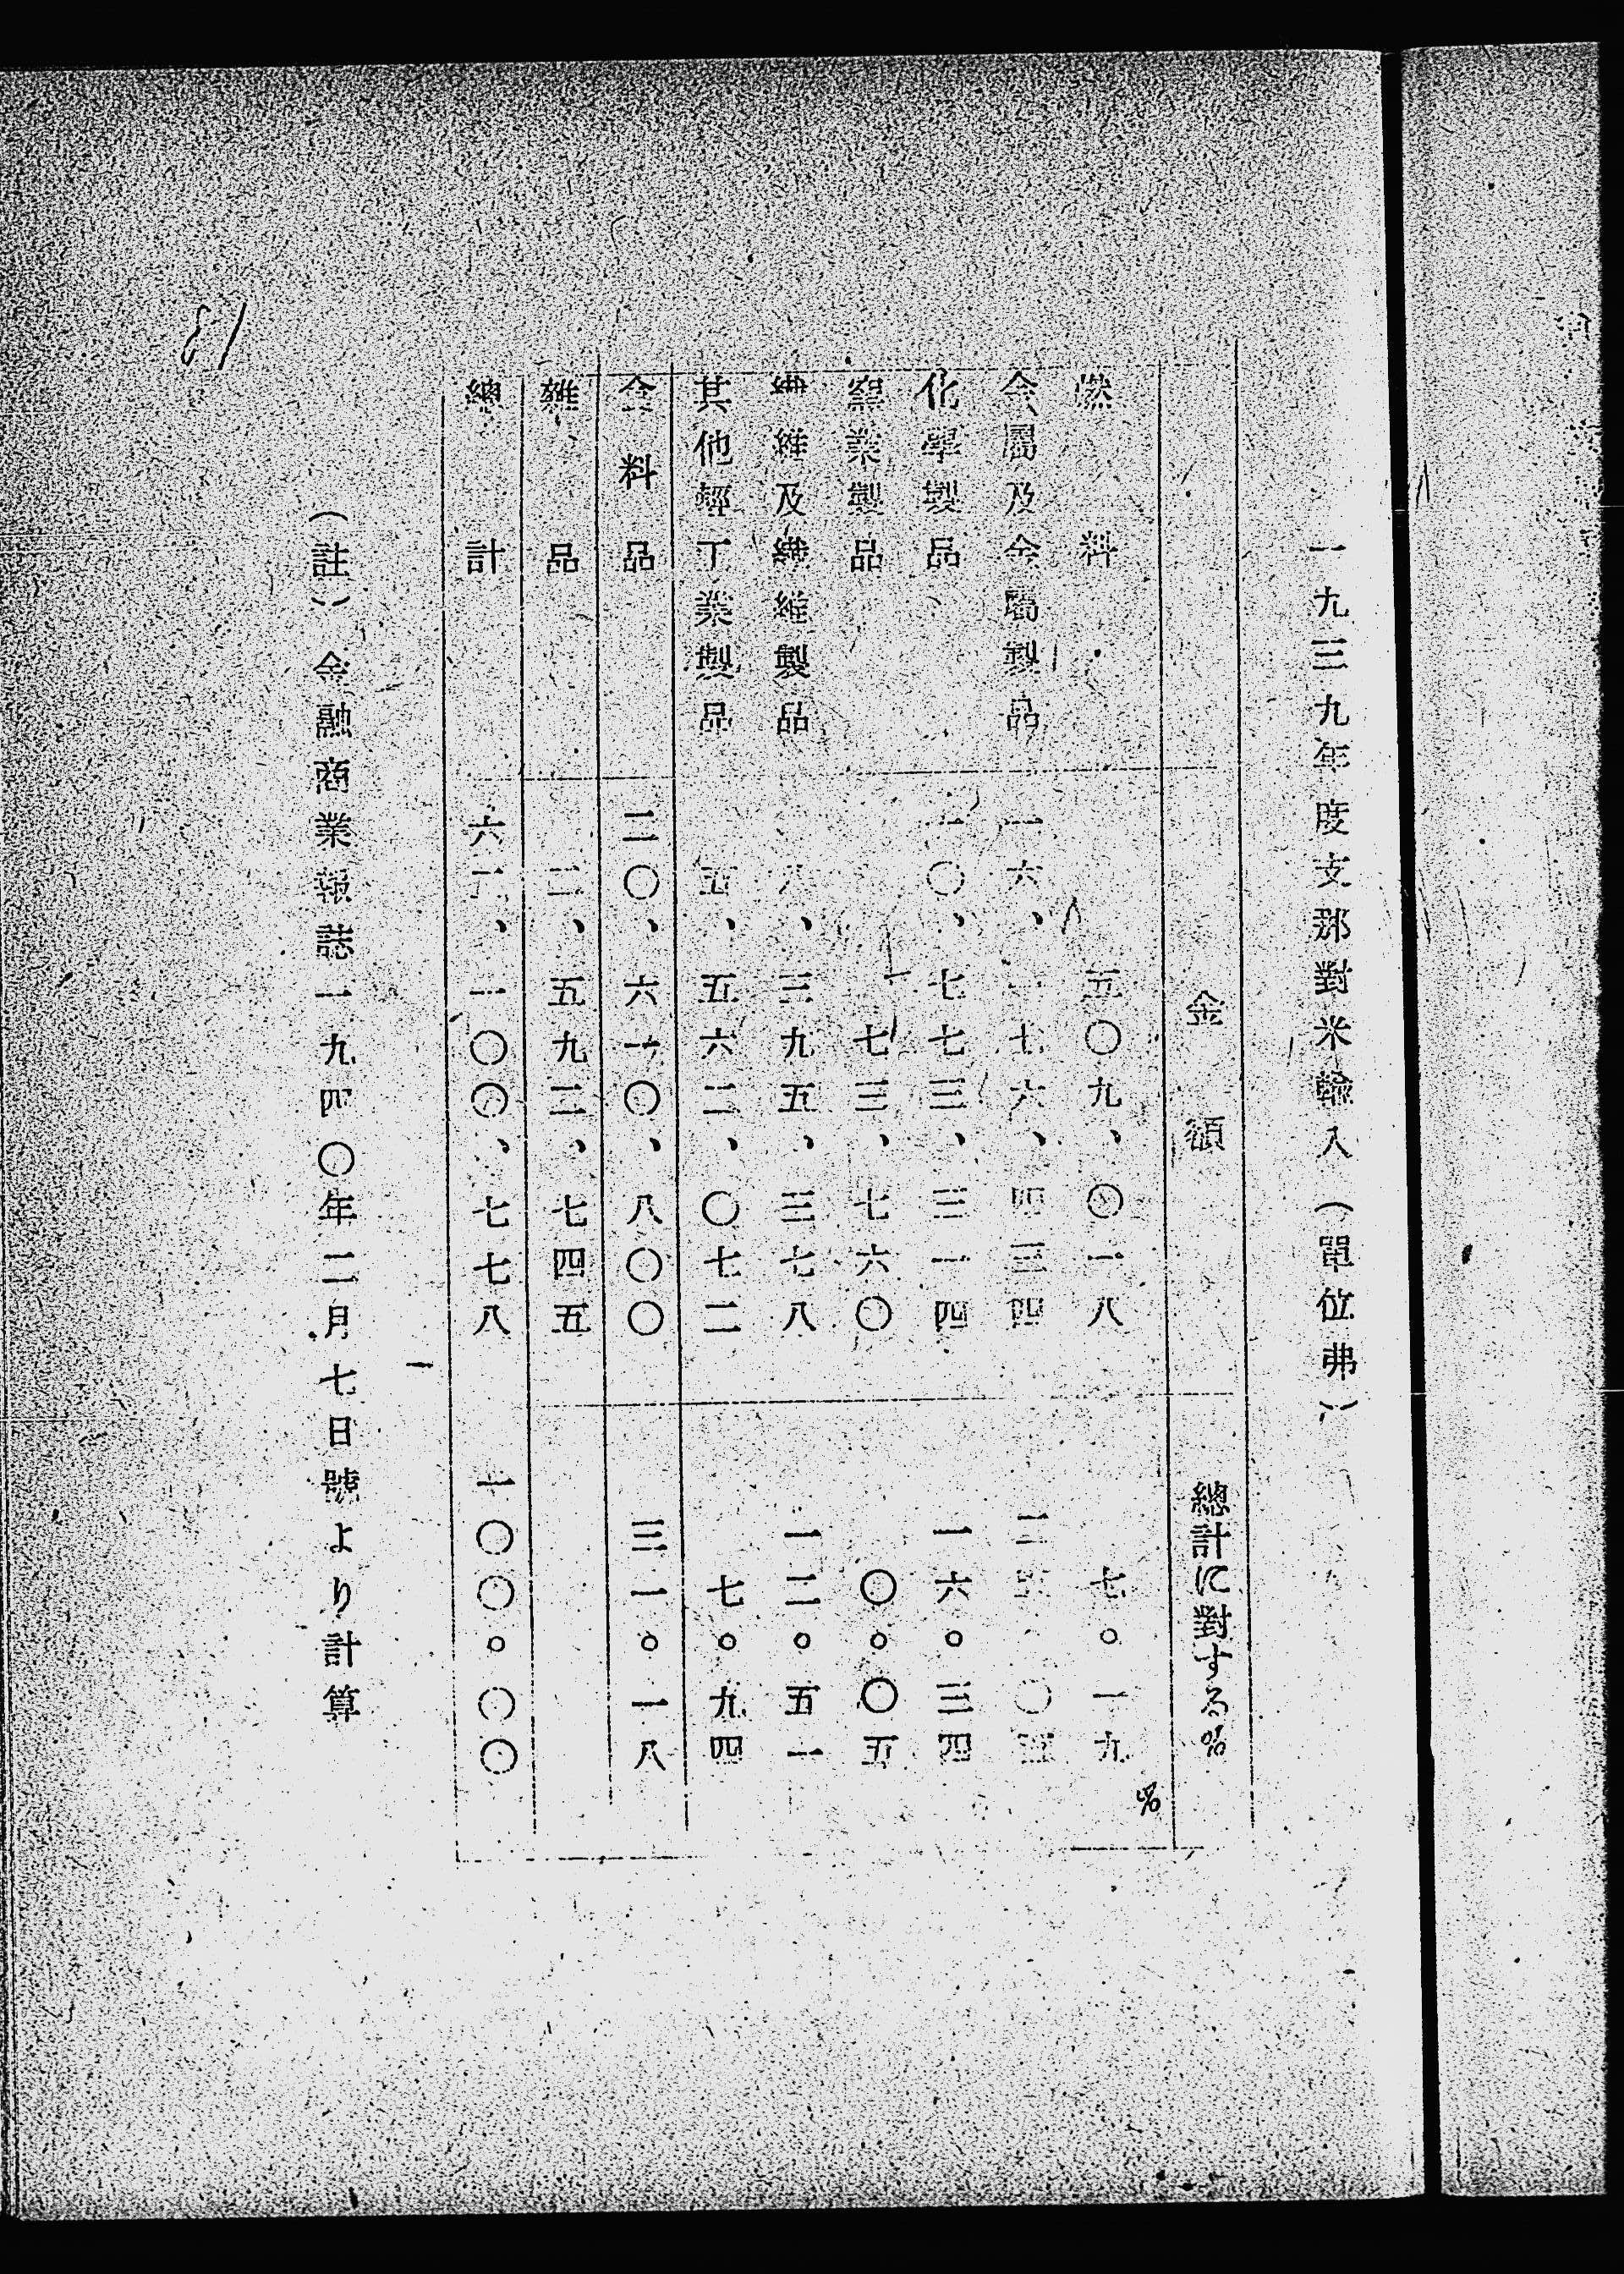 一九三九年度支那對米輸入（單位弗）
金額　總計に對する%
燃料　五〇九、〇一八　七。一九%
金屬及金屬製品　一六、一七六、四三四
化學製品　一〇、七七三、三一四　一六。三四
窯業製品　七三、七六〇　〇。〇五
纖維及纖維製品　八、三九五、三七八　一二。五一
其他輕工業製品　五、五六二、〇七二　七。九四
食料品　二〇、六一〇、八〇〇　三一。一八
雜品　二、五九二、七四五
總計　六、一〇〇、七七八　一〇〇。〇〇
（註）金融商業報誌一九四〇年二月七日號より計算